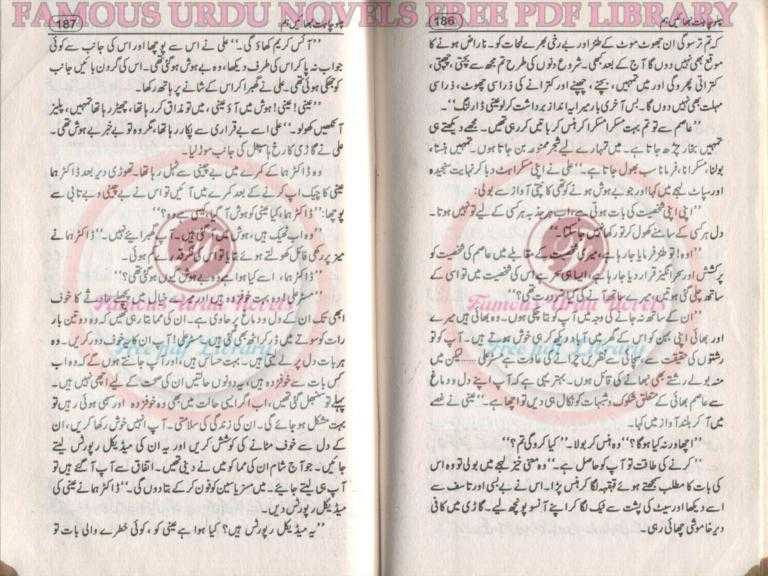 FAMOUS URDU NOVELS FREE PDF LIBRARY
186
کہ تم ترسو گی ان جھوٹ موٹ کے طنز اور بے رخی بھرے لمحات کو۔ ناراض ہونے کا
موقع بھی نہیں دوں گا آج کے بعد بھی۔ شروع دنوں کی طرح تم مجھ سے بچتی، چھپتی،
کتراتی پھرو گی اور میں تمہیں، بچنے، چھپنے اور کترانے کی ذراسی چھوٹ، ذراسی
مہلت بھی نہیں دوں گا۔ بس آخری بار میرا یہ انداز برداشت کر لو عینی ڈارلنگ۔“
”عاصم سے تو تم بہت مسکرا مسکرا کر ہنس کر باتیں کر رہی تھیں۔ مجھے دیکھتے ہی
تمہیں بخار چڑھ جاتا ہے۔ میں تمہارے لیے شجر ممنوعہ بن جاتا ہوں۔ تمہیں ہنسنا،
بولنا، مسکرانا، فرمانا سب بھول جاتا ہے۔“ علی نے اپنی مسکراہٹ دبا کر نہایت سنجیدہ
اور سپاٹ لہجے میں کہا اور جو بے ہوش ہونے کو تھی کانپتی آواز سے بولی:
”اپنی اپنی شخصیت کی بات ہوتی ہے۔ اب ہر جذبہ ہر کسی کے لیے تو نہیں ہوتا۔
دل ہر کسی کے سامنے کھول کر تو رکھا نہیں جا سکتا۔“
”اوہ! تو طنز فرمایا جا رہا ہے، میری شخصیت کے مقابلے میں عاصم کی شخصیت کو
پرکشش اور سحر انگیز قرار دیا جا رہا ہے، ایسا ہی سحر ہے اس کی شخصیت میں تو اسی کے
ساتھ چلی گئی ہوتیں، میرے ساتھ آنے کی کیا ضرورت تھی؟“
”ان کے ساتھ نہ جانے کی وجہ میں آپ کو بتا چکی ہوں۔ وہ بھائی ہیں میرے
اور بھائی اپنی بہن کو اس کے گھر میں آباد دیکھ کر ہی خوش ہوتے ہیں۔ آپ کو تو
منہ بولے رشتے بھی نبھانے کی قائل ہوں۔ بہتر یہی ہے کہ آپ اپنے دل و دماغ
سے عاصم بھائی کے متعلق شکوک و شبہات کو نکال ہی دیں تو اچھا ہے۔“ عینی نے غصے
میں آ کر بلند آواز میں کہا۔
”اچھا ورنہ کیا ہو گا؟“ وہ ہنس کر بولا۔ ”کیا کرو گی تم؟“
”کرنے کی طاقت تو آپ کو حاصل ہے۔“ وہ معنی خیز لہجے میں بولی تو وہ اس
کی بات کا مطلب سمجھتے ہوئے قہقہہ لگا کر ہنس پڑا۔ اس نے بے بسی اور تاسف سے
اسے دیکھا اور سیٹ کی پشت سے ٹیک لگا کر اپنے آنسو پونچھ لیے۔ گاڑی میں کافی
دیر خاموشی چھائی رہی۔
187
”آئس کریم کھاؤ گی۔“ علی نے اس سے پوچھا اور اس کی جانب سے کوئی
جواب نہ پا کر اس کی طرف دیکھا، وہ بے ہوش ہو گئی تھی۔ اس کی گردن بائیں جانب
کو جھکی ہوئی تھی۔ علی نے گھبرا کر اس کے شانے پر ہاتھ رکھا۔
”عینی! عینی! ہوش میں آؤ عینی، میں تو مذاق کر رہا تھا، چھیڑ رہا تھا تمہیں، پلیز
آنکھیں کھولو۔“ علی اسے بے قراری سے پکار رہا تھا، مگر وہ تو بے خبر بے ہوش تھی۔
علی نے گاڑی کا رخ ہاسپٹل کی جانب موڑ لیا۔
وہ ڈاکٹر ہما کے کمرے میں بے چینی سے ٹہل رہا تھا۔ تھوڑی دیر بعد ڈاکٹر ہما
عینی کا چیک اپ کرنے کے بعد کمرے میں آئیں تو اس نے بے چینی و بے تابی سے
پوچھا: ”ڈاکٹر ہما، کیا عینی کو ہوش آ گیا، کیسی ہے وہ؟“
”وہ اب ٹھیک ہیں، ہوش میں آ گئی ہیں۔ آپ گھبرائیے نہیں۔“ ڈاکٹر ہما نے
میز پر رکھی فائل کھولتے ہوئے بتایا تو اس کی فکر قدرے کم ہوئی۔
”ڈاکٹر ہما، اسے کیا ہوا ہے وہ بے ہوش کیوں ہو گئی تھی؟“
”مسز علی وہ بہت خوفزدہ ہیں اور میرے خیال میں پچھلے حادثے کا خوف
ابھی تک ان کے دل و دماغ پر حاوی ہے۔ ان کی مما بتا رہی تھیں کہ وہ دو تین بار
رات کو سوتے میں ڈر کر اٹھ گئی ہیں۔ مسٹر علی! آپ ان کا یہ خوف دور کریں۔ وہ
ہر بات دل پر لے لیتی ہیں۔ بہت حساس ہیں، اور آپ جانتے ہوں گے کہ وہ اب
کس بات سے خوفزدہ ہیں، یہ دونوں حالتیں ان کی صحت کے لیے اچھی نہیں ہیں۔
پہلے تو سنبھل گئی تھیں، اب اگر ایسی حالت میں بھی وہ خوفزدہ اور سہمی ہوئی رہیں تو
بہت مشکل ہو جائے گی۔ ان کی زندگی کی سلامتی۔ آپ انہیں خوش رکھا کریں، ان
کے دل سے خوف مٹانے کی کوشش کریں اور یہ ان کی میڈیکل رپورٹس لیتے
جائیں۔ جو آج شام ان کی مما کو میں نے دینی تھیں۔ اتفاق سے آپ آ گئے ہیں تو
آپ ہی لیتے جائیے۔ میں مسز یاسمین کو فون کر کے بتا دوں گی۔“ ڈاکٹر ہما نے عینی کی
میڈیکل رپورٹس دیں۔
”یہ میڈیکل رپورٹس ہیں؟ کیا ہوا ہے عینی کو، کوئی خطرے والی بات تو
Famous Urdu Novels
Free pdf Library
Famous Urdu Novels
Free pdf Library